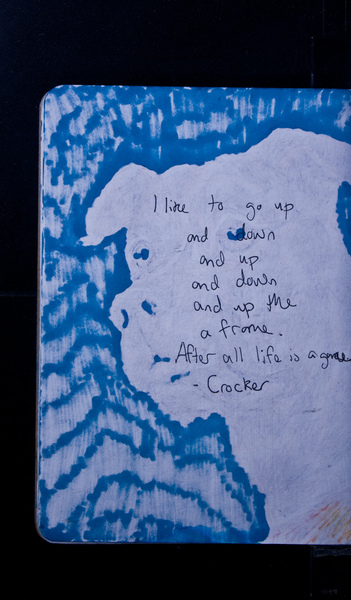 I like to go up
and down
and up
and down
and up the
a frame.
After all life is a game
- Crocker